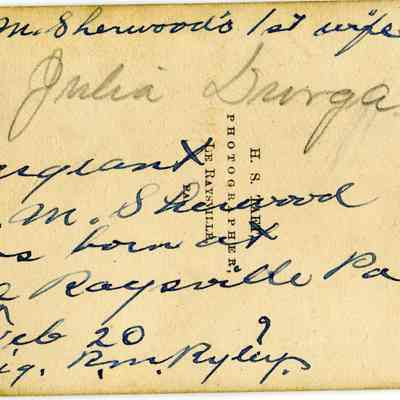 M. Sherwood's 1st wife
Julia Durga
M. Sherwood
born at
Raysville Pa
Feb 20
R.M. Ryley
H. S.
PHOTOGRAPHER,
LE RAYSVILLE
PA.